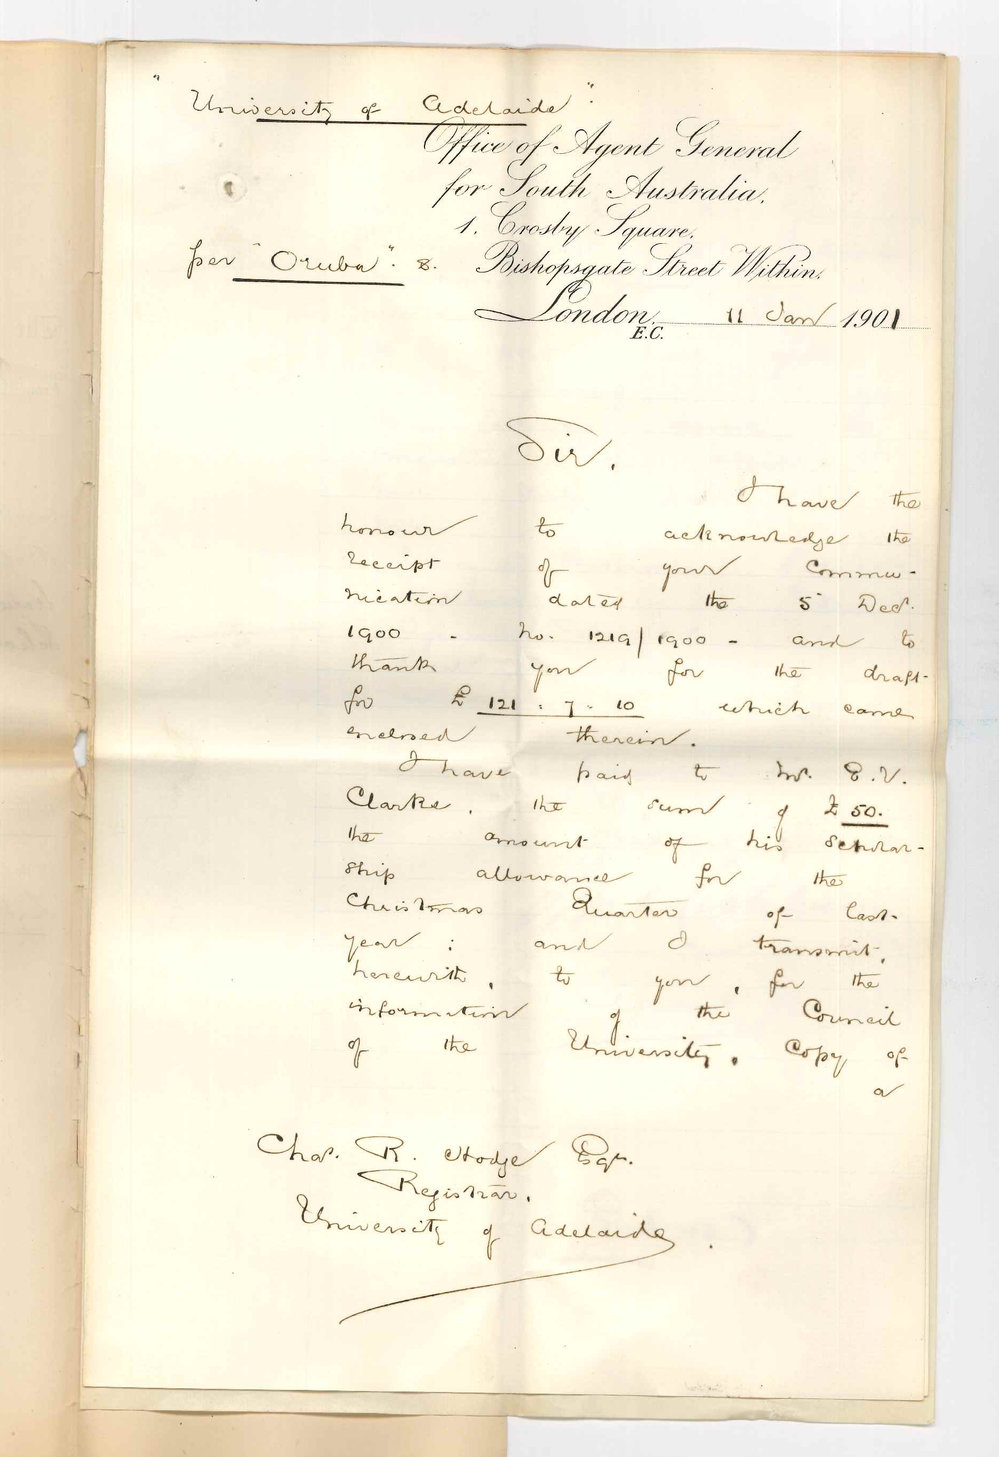 "University of Adelaide".
Office of Agent General
for South Australia,
1. Crosby Square,
per "Oruba". 8. Bishopsgate Street Within,
London, 11 Jan 1901
E.C.
Sir,
I have the
honour to acknowledge the
receipt of your Commu-
nication dated the 5 Decr.
1900 - no. 1219/1900 - and to
thank you for the draft
for £121.7.10 which came
enclosed therein.
I have paid to Mr. E.V.
Clarke, the sum of £50.
the amount of his Scholar-
ship allowance for the
Christmas Quarter of last
year; and I transmit,
herewith, to you, for the
information of the Council
of the University, Copy of
a
Chas. R. Hodge Esqr.
Registrar,
University of Adelaide.